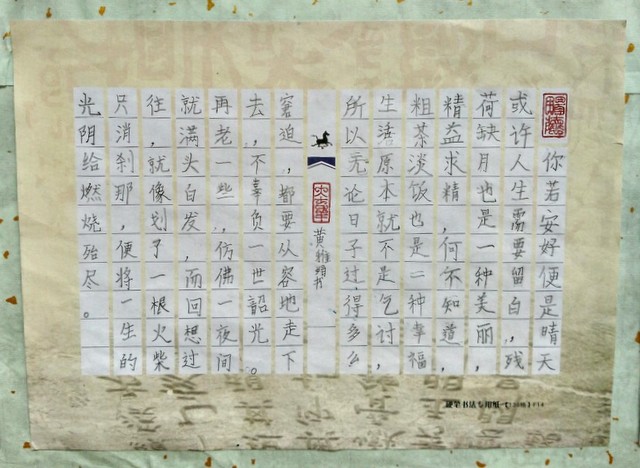 你若安好便是晴天
或许人生需要留白,残
荷缺月也是一种美丽,
精益求精,何不知道,
粗茶淡饭也是一种幸福,
生活原本就不是乞讨,
所以无论日子过得多么
窘迫,都要从容地走下
去,不辜负一世韶光。
再老一些,仿佛一夜间
就满头白发,而回想过
往,就像划了一根火柴
只消刹那,便将一生的
光阴给燃烧殆尽。
硬笔书法专用纸